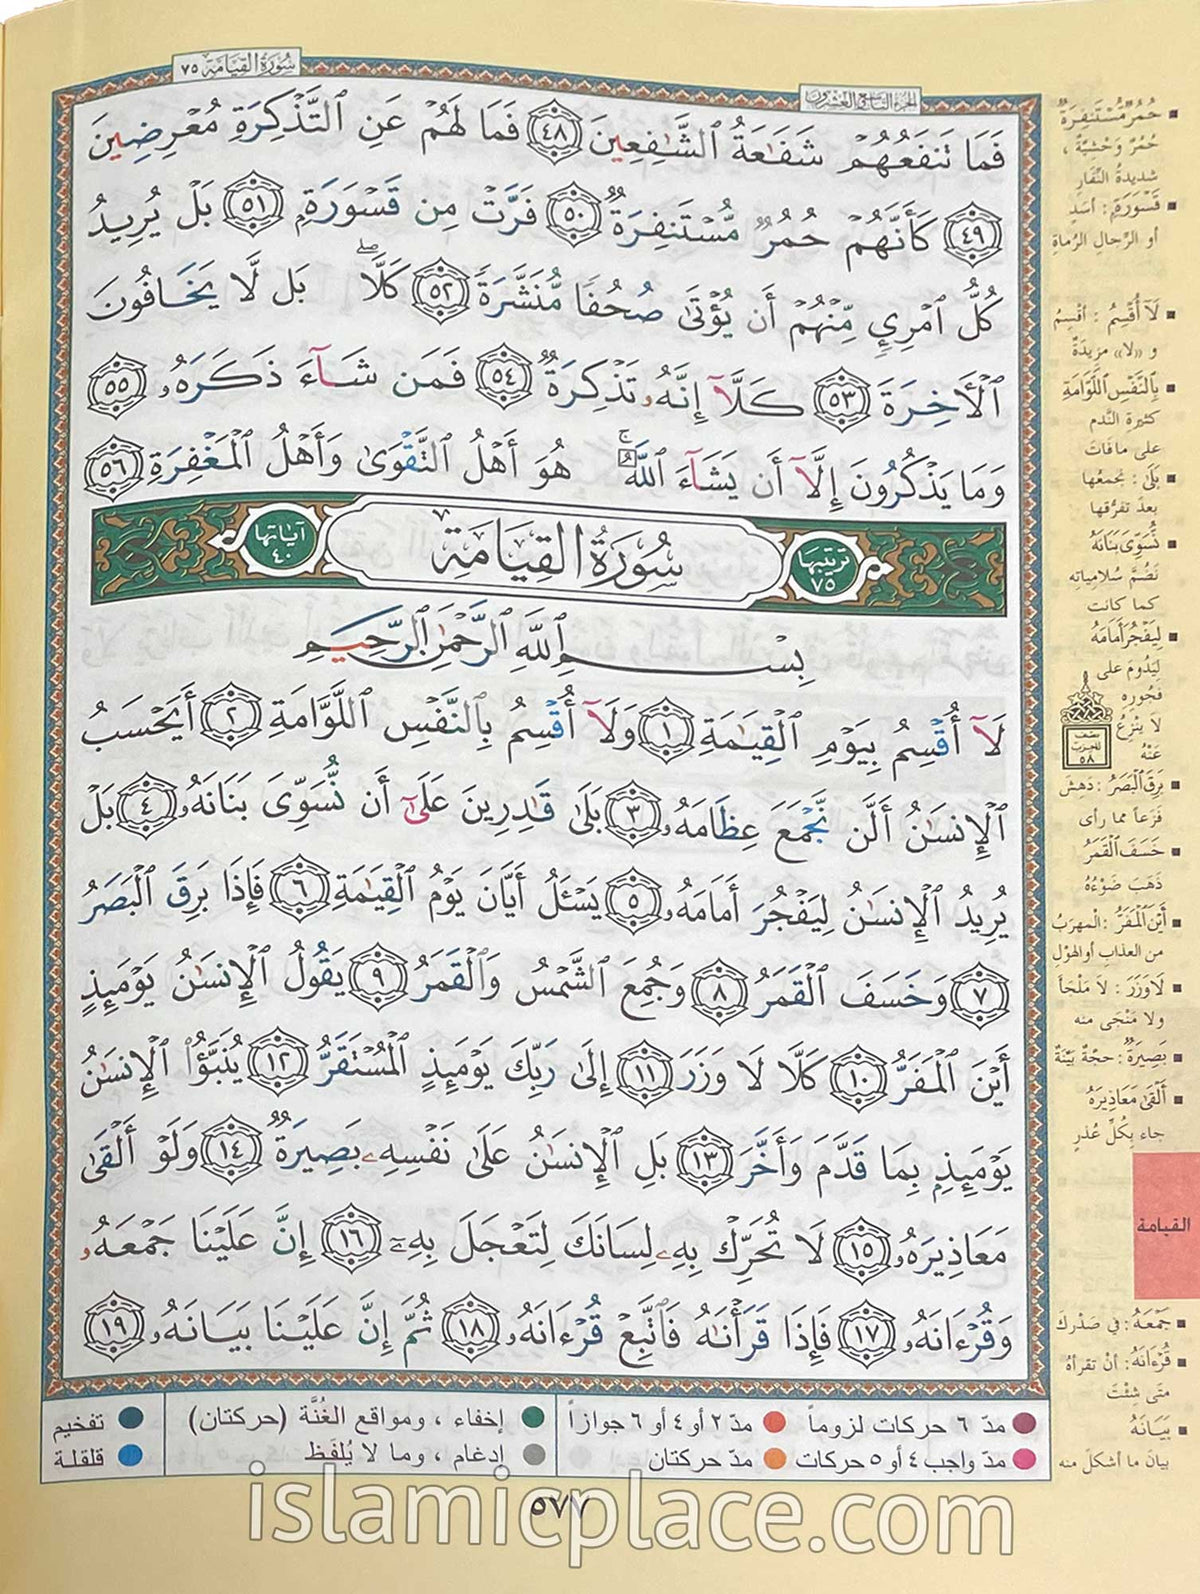 سُورَةُ القِيَامَة ٧٥
الجزء التاسع والعشرون
فَمَا تَنفَعُهُمْ شَفَٰعَةُ ٱلشَّٰفِعِينَ ٤٨ فَمَا لَهُمْ عَنِ ٱلتَّذْكِرَةِ مُعْرِضِينَ
٤٩ كَأَنَّهُمْ حُمُرٌ مُّسْتَنفِرَةٌ ٥٠ فَرَّتْ مِن قَسْوَرَةٍۭ ٥١ بَلْ يُرِيدُ
كُلُّ ٱمْرِئٍ مِّنْهُمْ أَن يُؤْتَىٰ صُحُفًا مُّنَشَّرَةً ٥٢ كَلَّا ۖ بَل لَّا يَخَافُونَ
ٱلْأَخِرَةَ ٥٣ كَلَّآ إِنَّهُۥ تَذْكِرَةٌ ٥٤ فَمَن شَآءَ ذَكَرَهُۥ ٥٥
وَمَا يَذْكُرُونَ إِلَّآ أَن يَشَآءَ ٱللَّهُ ۚ هُوَ أَهْلُ ٱلتَّقْوَىٰ وَأَهْلُ ٱلْمَغْفِرَةِ ٥٦
ترتيبها ٧٥ سُورَةُ القِيَامَةِ آياتها ٤٠
بِسْمِ ٱللَّهِ ٱلرَّحْمَٰنِ ٱلرَّحِيمِ
لَآ أُقْسِمُ بِيَوْمِ ٱلْقِيَٰمَةِ ١ وَلَآ أُقْسِمُ بِٱلنَّفْسِ ٱللَّوَّامَةِ ٢ أَيَحْسَبُ
ٱلْإِنسَٰنُ أَلَّن نَّجْمَعَ عِظَامَهُۥ ٣ بَلَىٰ قَٰدِرِينَ عَلَىٰٓ أَن نُّسَوِّىَ بَنَانَهُۥ ٤ بَلْ
يُرِيدُ ٱلْإِنسَٰنُ لِيَفْجُرَ أَمَامَهُۥ ٥ يَسْـَٔلُ أَيَّانَ يَوْمُ ٱلْقِيَٰمَةِ ٦ فَإِذَا بَرِقَ ٱلْبَصَرُ
٧ وَخَسَفَ ٱلْقَمَرُ ٨ وَجُمِعَ ٱلشَّمْسُ وَٱلْقَمَرُ ٩ يَقُولُ ٱلْإِنسَٰنُ يَوْمَئِذٍ
أَيْنَ ٱلْمَفَرُّ ١٠ كَلَّا لَا وَزَرَ ١١ إِلَىٰ رَبِّكَ يَوْمَئِذٍ ٱلْمُسْتَقَرُّ ١٢ يُنَبَّؤُا۟ ٱلْإِنسَٰنُ
يَوْمَئِذٍۭ بِمَا قَدَّمَ وَأَخَّرَ ١٣ بَلِ ٱلْإِنسَٰنُ عَلَىٰ نَفْسِهِۦ بَصِيرَةٌ ١٤ وَلَوْ أَلْقَىٰ
مَعَاذِيرَهُۥ ١٥ لَا تُحَرِّكْ بِهِۦ لِسَانَكَ لِتَعْجَلَ بِهِۦٓ ١٦ إِنَّ عَلَيْنَا جَمْعَهُۥ
وَقُرْءَانَهُۥ ١٧ فَإِذَا قَرَأْنَٰهُ فَٱتَّبِعْ قُرْءَانَهُۥ ١٨ ثُمَّ إِنَّ عَلَيْنَا بَيَانَهُۥ ١٩
حُمُرٌ مُّسْتَنفِرَةٌ
حُمُرٌ وَحْشِيَّة ،
شديدةُ النِّفَارِ
قَسْوَرَةٍ : أسَدٍ
أو الرِّجال الرُماةِ
لَآ أُقْسِمُ : أقْسِمُ
و «لا» مَزِيدَةٌ
بِالنَّفْسِ اللَّوَّامَةِ
كثيرة النَّدم
على ما فَاتَ
بَلَىٰ : نجمعُها
بعدَ تفرُّقِها
نُّسَوِّىَ بَنَانَهُ
نَضُمَّ سُلامياتِه
كما كانت
لِيَفْجُرَ أَمَامَهُ
لِيَدُومَ على
فجُورِهِ
لا يَنْزِعُ
عَنْهُ
نصف
الحزب
٥٨
بَرِقَ الْبَصَرُ : دَهِشَ
فَزَعاً مما رأى
خَسَفَ الْقَمَرُ
ذَهَبَ ضَوْءُهُ
أَيْنَ الْمَفَرُّ : الْمهرَبُ
من العذاب أو الهوْلِ
لَا وَزَرَ : لا مَلْجَأ
ولا مَنْجَى منه
بَصِيرَةٌ : حجَّةٌ بَيِّنَةٌ
أَلْقَىٰ مَعَاذِيرَهُ
جاء بِكُلِّ عُذرٍ
القيامة
جَمْعَهُ : في صَدْرِك
قُرْءَانَهُ : أنْ تقرأهُ
متَى شِئْتَ
بَيَانَهُ
بيانَ ما أشكلَ منه
مدّ ٦ حركات لزوماً مدّ ٢ أو ٤ أو ٦ جوازاً إخفاء ، ومواقع الغُنَّة (حركتان) تفخيم
مدّ واجب ٤ أو ٥ حركات مدّ حركتان إدغام ، وما لا يُلفَظ قلقلة
٥٧٧
islamicplace.com